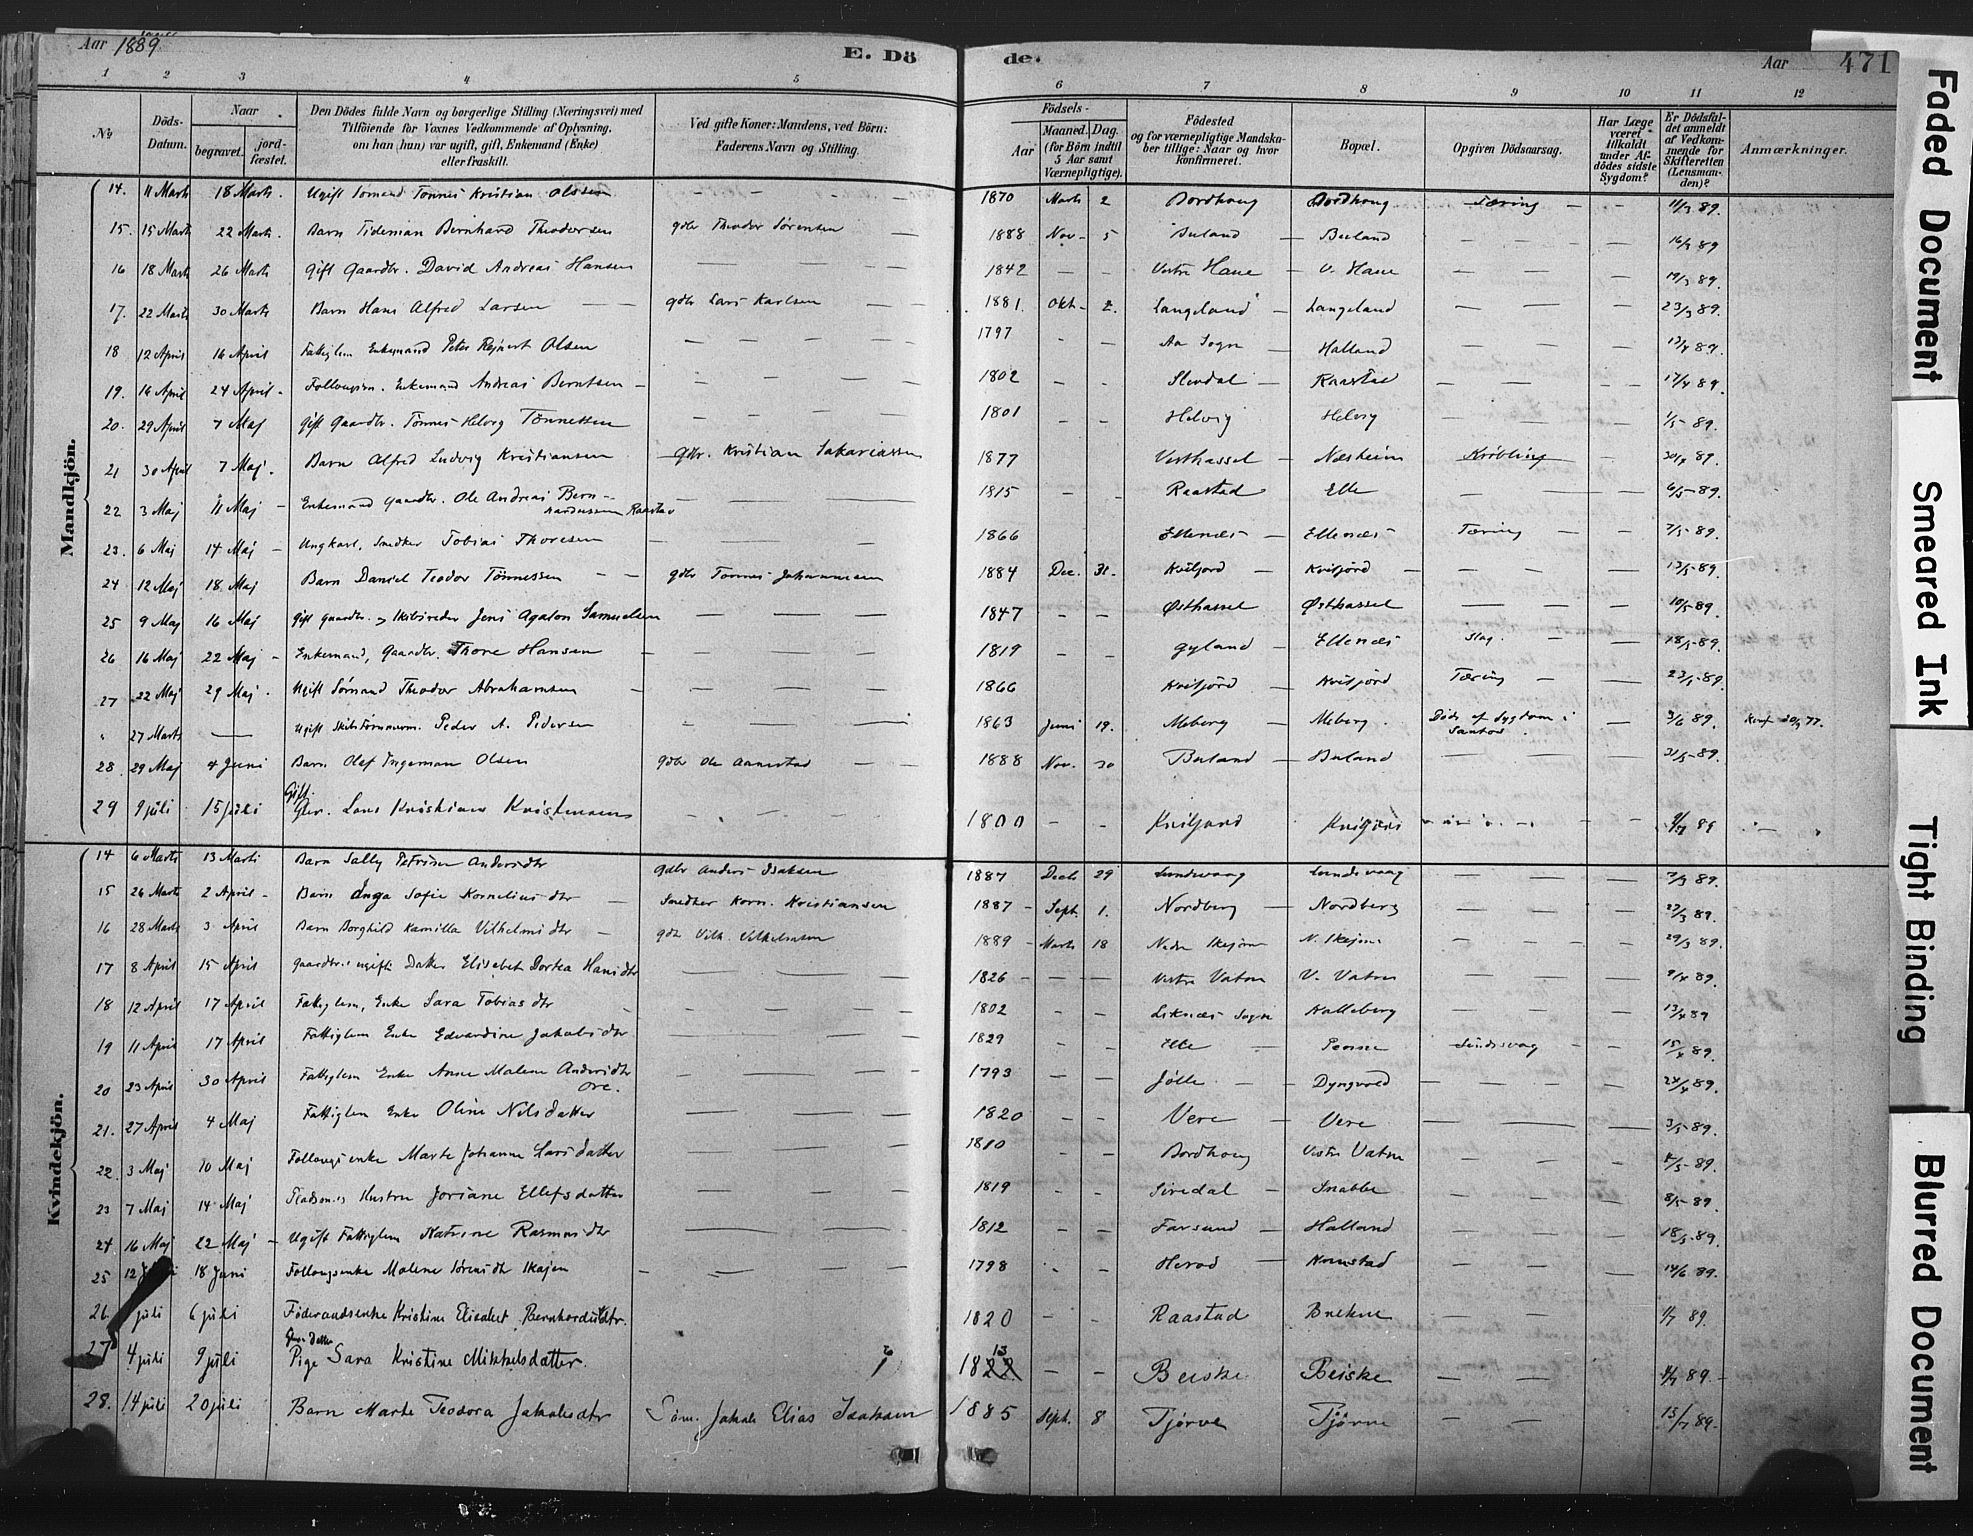 Aar 1889
E. Dö de.
Aar 471
1 2 3 4 5 6 7 8 9 10 11 12
No
Döds-Datum.
Naar
begravet.
jord-fæstet.
Den Dödes fulde Navn og borgerlige Stilling (Næringsvei) med
Tilföiende for Voxnes Vedkommende af Oplysning,
om han (hun) var ugift, gift, Enkemand (Enke)
eller fraskilt.
Ved gifte Koner: Mandens, ved Börn:
Faderens Navn og Stilling.
Födsels-
Aar
Maaned. Dag.
(for Börn indtil
5 Aar samt
Værnepligtige).
Födested
og for værnepligtige Mandska-
ber tillige: Naar og hvor
konfirmeret.
Bopæl.
Opgiven Dödsaarsag.
Har Læge
været
tilkaldt
under Af-
dödes sidste
Sygdom?
Er Dödsfal-
det anmeldt
af Vedkom-
mende for
Skifteretten
(Lensman-
den)?
Anmærkninger.
Mandkjön.
14. 11 Marts 18 Marts. Ugift Sømand Tønnes Kristian Olssen — — 1870 Marts 2 Bordhoug Bordhoug Tæring — — 11/3 89.
15. 15 Marts 22 Marts. Barn Tideman Bernhard Theodorsen gdbr Theodor Sørensen — 1888 Nov. 5 Buland — Buland — — — 16/3 89
16 18 Marts 26 Marts Gift Gaardbr. David Andreas Hansen — — — 1842 — — Vestre Haue — V. Haue — — — 19/3 89.
17. 22 Marts 30 Marts Barn Hans Alfred Larsen — — gdbr Lars Karlsen — — 1881. Okt. 2. Langeland — Langeland — — — 23/3 89.
18 12 April 16 April Fattiglem Enkemand Peter Olsen — — — 1797 — — Aa Sogn — Halland — — — 13/4 89.
19. 16 April 24 April Enkemand Andreas Berntsen — — — 1802 — — — Raastad — — — 17/4 89.
20. 29 April 7 Maj Gift Gaardbr. Tønnes Helvig Tønnessen — — — 1801 — — Helvig Helvig — — — 1/5 89.
21 30 April 7 Maj. Barn Alfred Ludvig Kristiansen gdbr. Kristian Sakariassen 1877 Vesthassel — Næsheim — 30/4 89.
22 3 Maj 11 Maj — Enkemand Gaardbr. Ole Andreas Bern-
Raastad — — — 1815 — — Raastad Elle — — — 6/5 89.
23. 6 Maj 14 Maj — Ungkarl, Snedker Tobias Thoresen — — — 1866 Ellenæs — Ellenæs Tæring — — 7/5 89.
24 12 Maj 18 Maj Barn Daniel Teodor Tønnessen — — gdbr Tønnes Johannessen 1884 Dec. 31. Kviljord — Kviljord — — — — 13/5 89.
25 9 Maj 16 Maj Gift Gaardbr. og Skibsreder Jens Agaton Samuelsen — — — 1847 — — Østhassel Østhassel — — — 10/5 89.
26 16 Maj 22 Maj — Enkemand, Gaardbr. Thore Hansen — — — — 1819 — — Gyland — Ellenæs Slag. — — 18/5 89.
27 22 Maj 29 Maj. Ugift Sømand Theodor Abrahamsen — — — — 1866 Kviljord — Kviljord Tæring — — 23/5 89.
" 27 Marts — Ugift Peder A. Pedersen — — — 1863 Juni 19. Meberg — Meberg. Døde af Sygdom i
Santos — 3/6 89. Konf 77.
28. 29 Maj 4 Juni Barn Olaf Ingeman Olsen gdbr Ole Aanestad — — 1888 Nov. 30 Buland — Buland — — — 31/5 89.
Gift
29 9 juli 15 juli Gbr. Lars Kristian Kristensen — — — 1800 — — Kviljord Kviljord — — 89
Kvindekjön.
14 6 Marts 13 Marts Barn Sally Petrine Andersdtr gdbr Anders Isaksen 1887 Decb 29 Lundevaag Lundevaag — — — 7/3 89.
15 26 Marts 2 April — Barn Inga Sofie Kornelius dtr — Snedker Korn. Kristiansen 1887 — Sept. 1. Nordberg — Nordberg — — — 27/3 89.
16 28 Marts 3 April Barn Borghild Kamilla Vilhelms dtr — gdbr Vilh. Vilhelmsen 1889 — Marts 18 — — — 29/3 89.
17 8 April 15 April Gaardbr.s ugifte Datter Elisabet Dortea Hansdtr — — — 1826 — — — Vestre Vatne V. Vatne — — — 9/4 89.
18 12 April 17 April Fattiglem, Enke Sara Tobias dtr — — — — 1802 — — Liknes Sogn Kalleberg — — — 13/4 89
19 11 April 17 April Fattiglem Enke Edvardine Jakobsdtr — — — 1829 — — Elle — 15/4 89.
20 23 April 30 April Fattiglem Enke Anne Malene Andersdtr
Ore. — — — 1793 — — Jølle — Dyngvold — — — 24/4 89.
21. 27 April 4 Maj Fattiglem Enke Oline Nilsdatter — — — 1820 — — Vere — Vere — — — 3/5 89.
22. 3 Maj 10 Maj Marte Johanne Larsdatter — — — 1810 — — Bordhoug Vestre Vatne — — — 89.
23 7 Maj 14 Maj Hustru Joriane Ellefsdatter — — — 1819 — — Siredal — Snabbe — — — 8/5 89.
24. 16 Maj 22 Maj — Ugift Fattiglem Katrine Rasmus dtr — — — 1812 — — Farsund — Halland — — — 18/5 89.
25 12 18 Juni Malene Sørensdtr Skajen — — — — 1798 — Herad — — — — 14/6 89.
26. juli 6 juli Føderaadsenke Kristine Elisabet Bernhardusdtr. 1820 — — Raastad Brekne — — — 89.
Gbr Datter
27 4 juli 9 juli Pige Sara Kristine Mikkelsdatter. 1822 13 — — Beiske Beiske — — — 4/7 89.
28. 14 juli 20 juli Barn Marte Teodora Jakobsdtr Søm. Jakob Elias Isaksen 1885 Sept. 8 Tjørve Tjørve — — — 15/7 89.
Faded Document
Smeared Ink
Tight Binding
Blurred Document